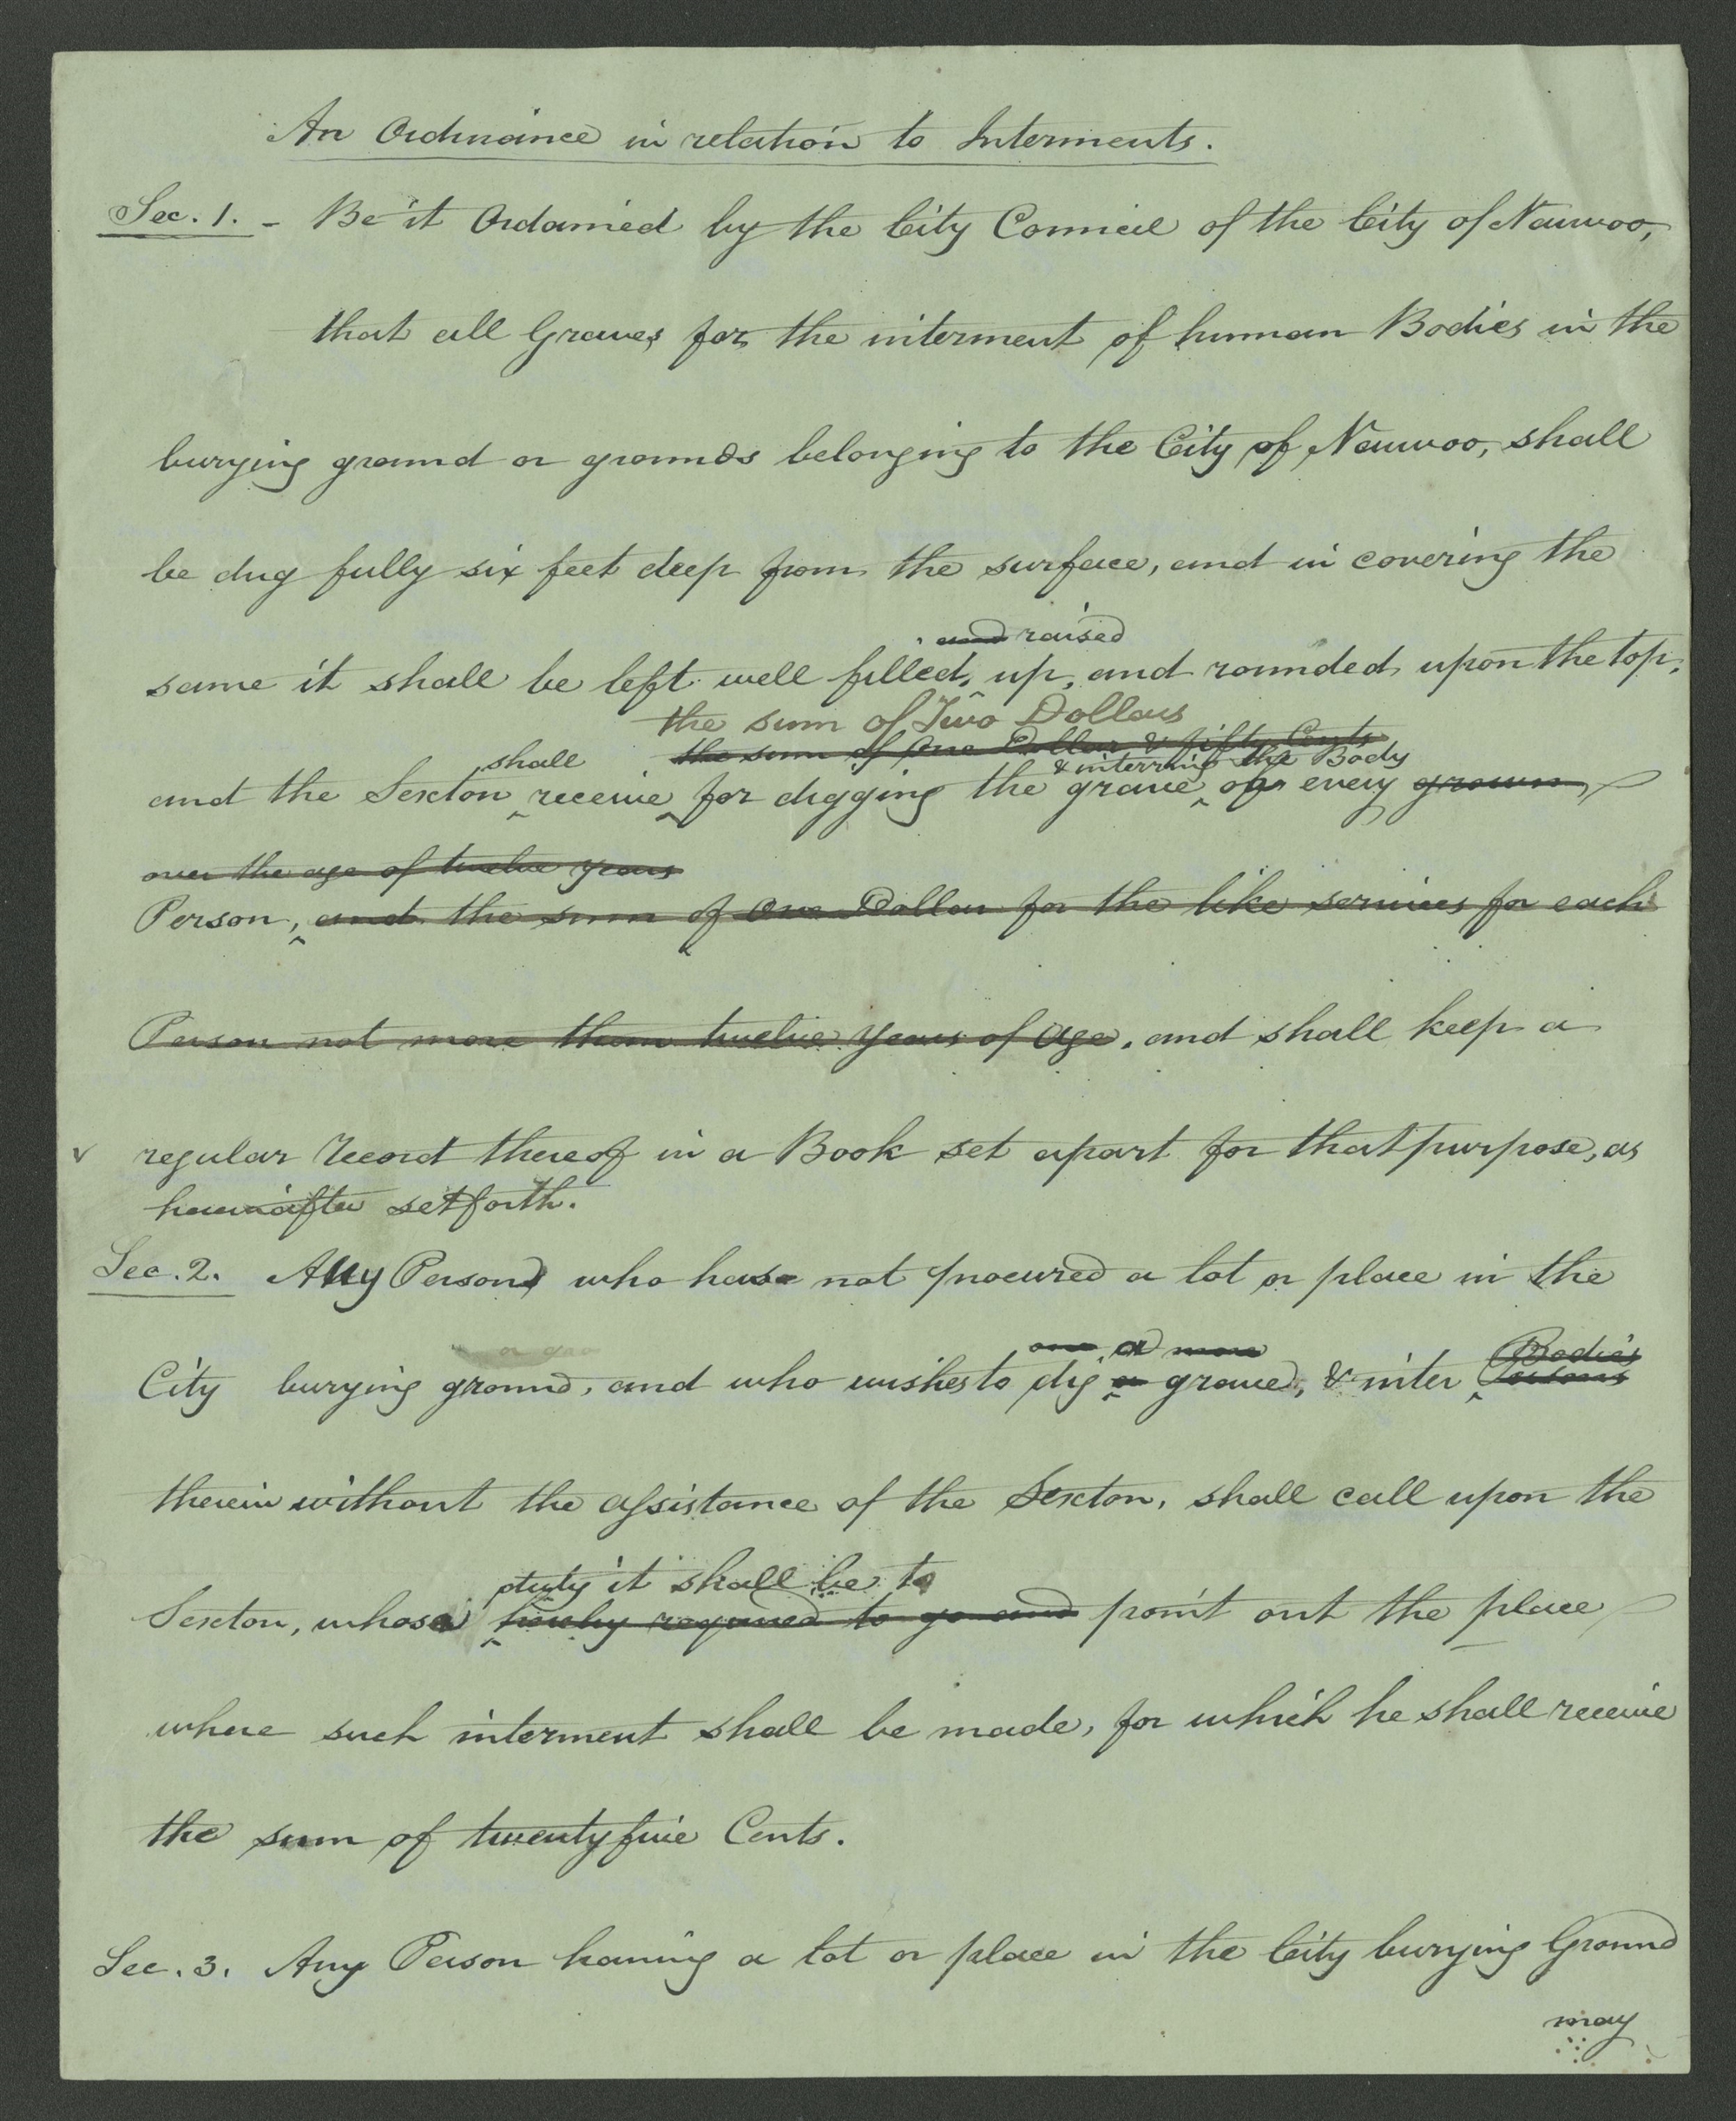 An Ordinance in relation to Interments.
Sec. 1. - Be it Ordained by the City Council of the City of Nauvoo,
that all Graves for the interment of human Bodies in the
burying ground or grounds belonging to the City of Nauvoo, shall
be dug fully six feet deep from the surface, and in covering the
and raised
same it shall be left well filled, up, and rounded upon the top,
the sum of Two Dollars
shall the sum of One Dollar & fifty Cents
& interring the Body
and the Sexton receive for digging the grave of every grown
over the age of twelve years
Person, and the sum of One Dollar for the like services for each
Person not more than twelve years of age, and shall keep a
regular Record thereof in a Book set apart for that purpose, as
hereinafter set forth.
Sec. 2. Any Person who has not procured a lot or place in the
one or more Bodies
City burying ground, and who wishes to dig a grave, & inter Persons
therein without the assistance of the Sexton, shall call upon the
duty it shall be to
Sexton, whose hereby required to go and point out the place
where such interment shall be made, for which he shall receive
the sum of twenty five Cents.
Sec. 3. Any Person having a lot or place in the City burying Ground
may